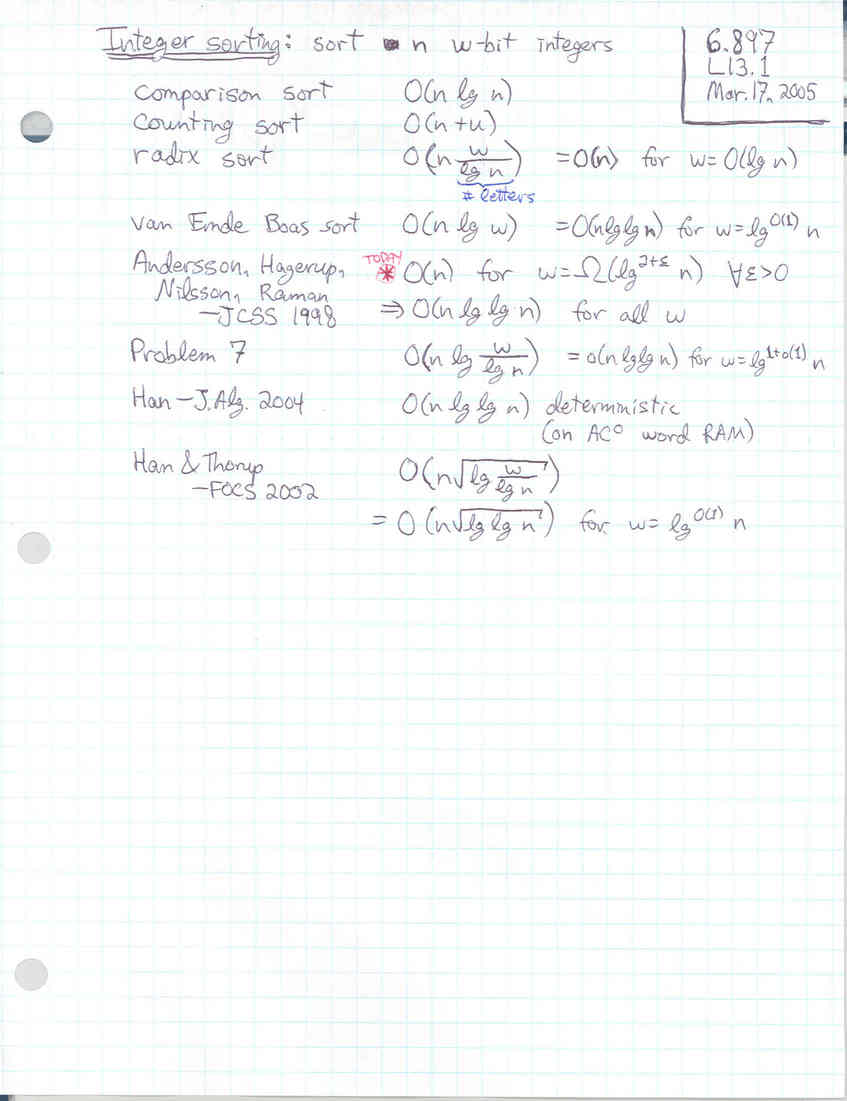 Integer sorting: sort n w-bit integers
6.897
L13.1
Mar. 17, 2005
comparison sort O(n lg n)
counting sort O(n+u)
radix sort O(n w/lg n) = O(n) for w = O(lg n)
# letters
van Emde Boas sort O(n lg w) = O(n lg lg n) for w = lg^O(1) n
Andersson, Hagerup, TODAY * O(n) for w = Ω(lg^2+ε n) ∀ε>0
Nilsson, Raman
—JCSS 1998 ⇒ O(n lg lg n) for all w
Problem 7 O(n lg w/lg n) = o(n lg lg n) for w = lg^1+o(1) n
Han — J. Alg. 2004 O(n lg lg n) deterministic
(on AC⁰ word RAM)
Han & Thorup O(n √(lg w/lg n))
—FOCS 2002
= O(n √(lg lg n)) for w = lg^O(1) n